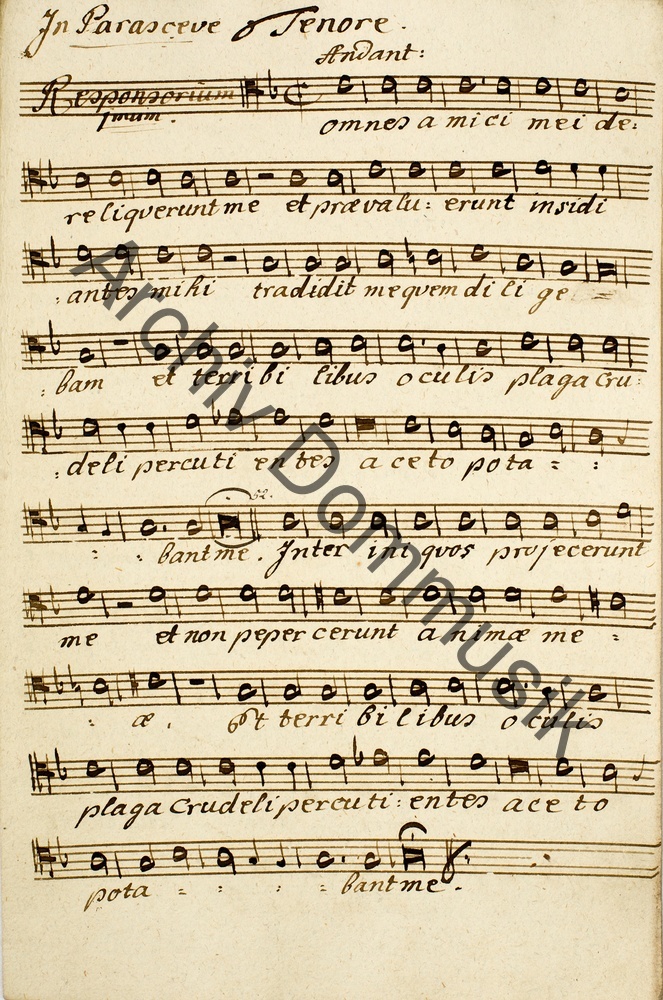 In Parasceve Tenore.
Andant:
Responsorium
1mum.
omnes amici mei de:
reliqverunt me et prævalu: erunt insidi
: antes mihi tradidit me qvem dilige
: bam et terribilibus oculis plaga Cru:
: deli percuti entes aceto pota = :
: : bant me. Inter iniqvos projecerunt
me et non pepercerunt animæ me =
: æ. Et terribilibus oculis
plaga Crudeli percuti: entes aceto
pota = : : = bant me.
Archiv Dommusik